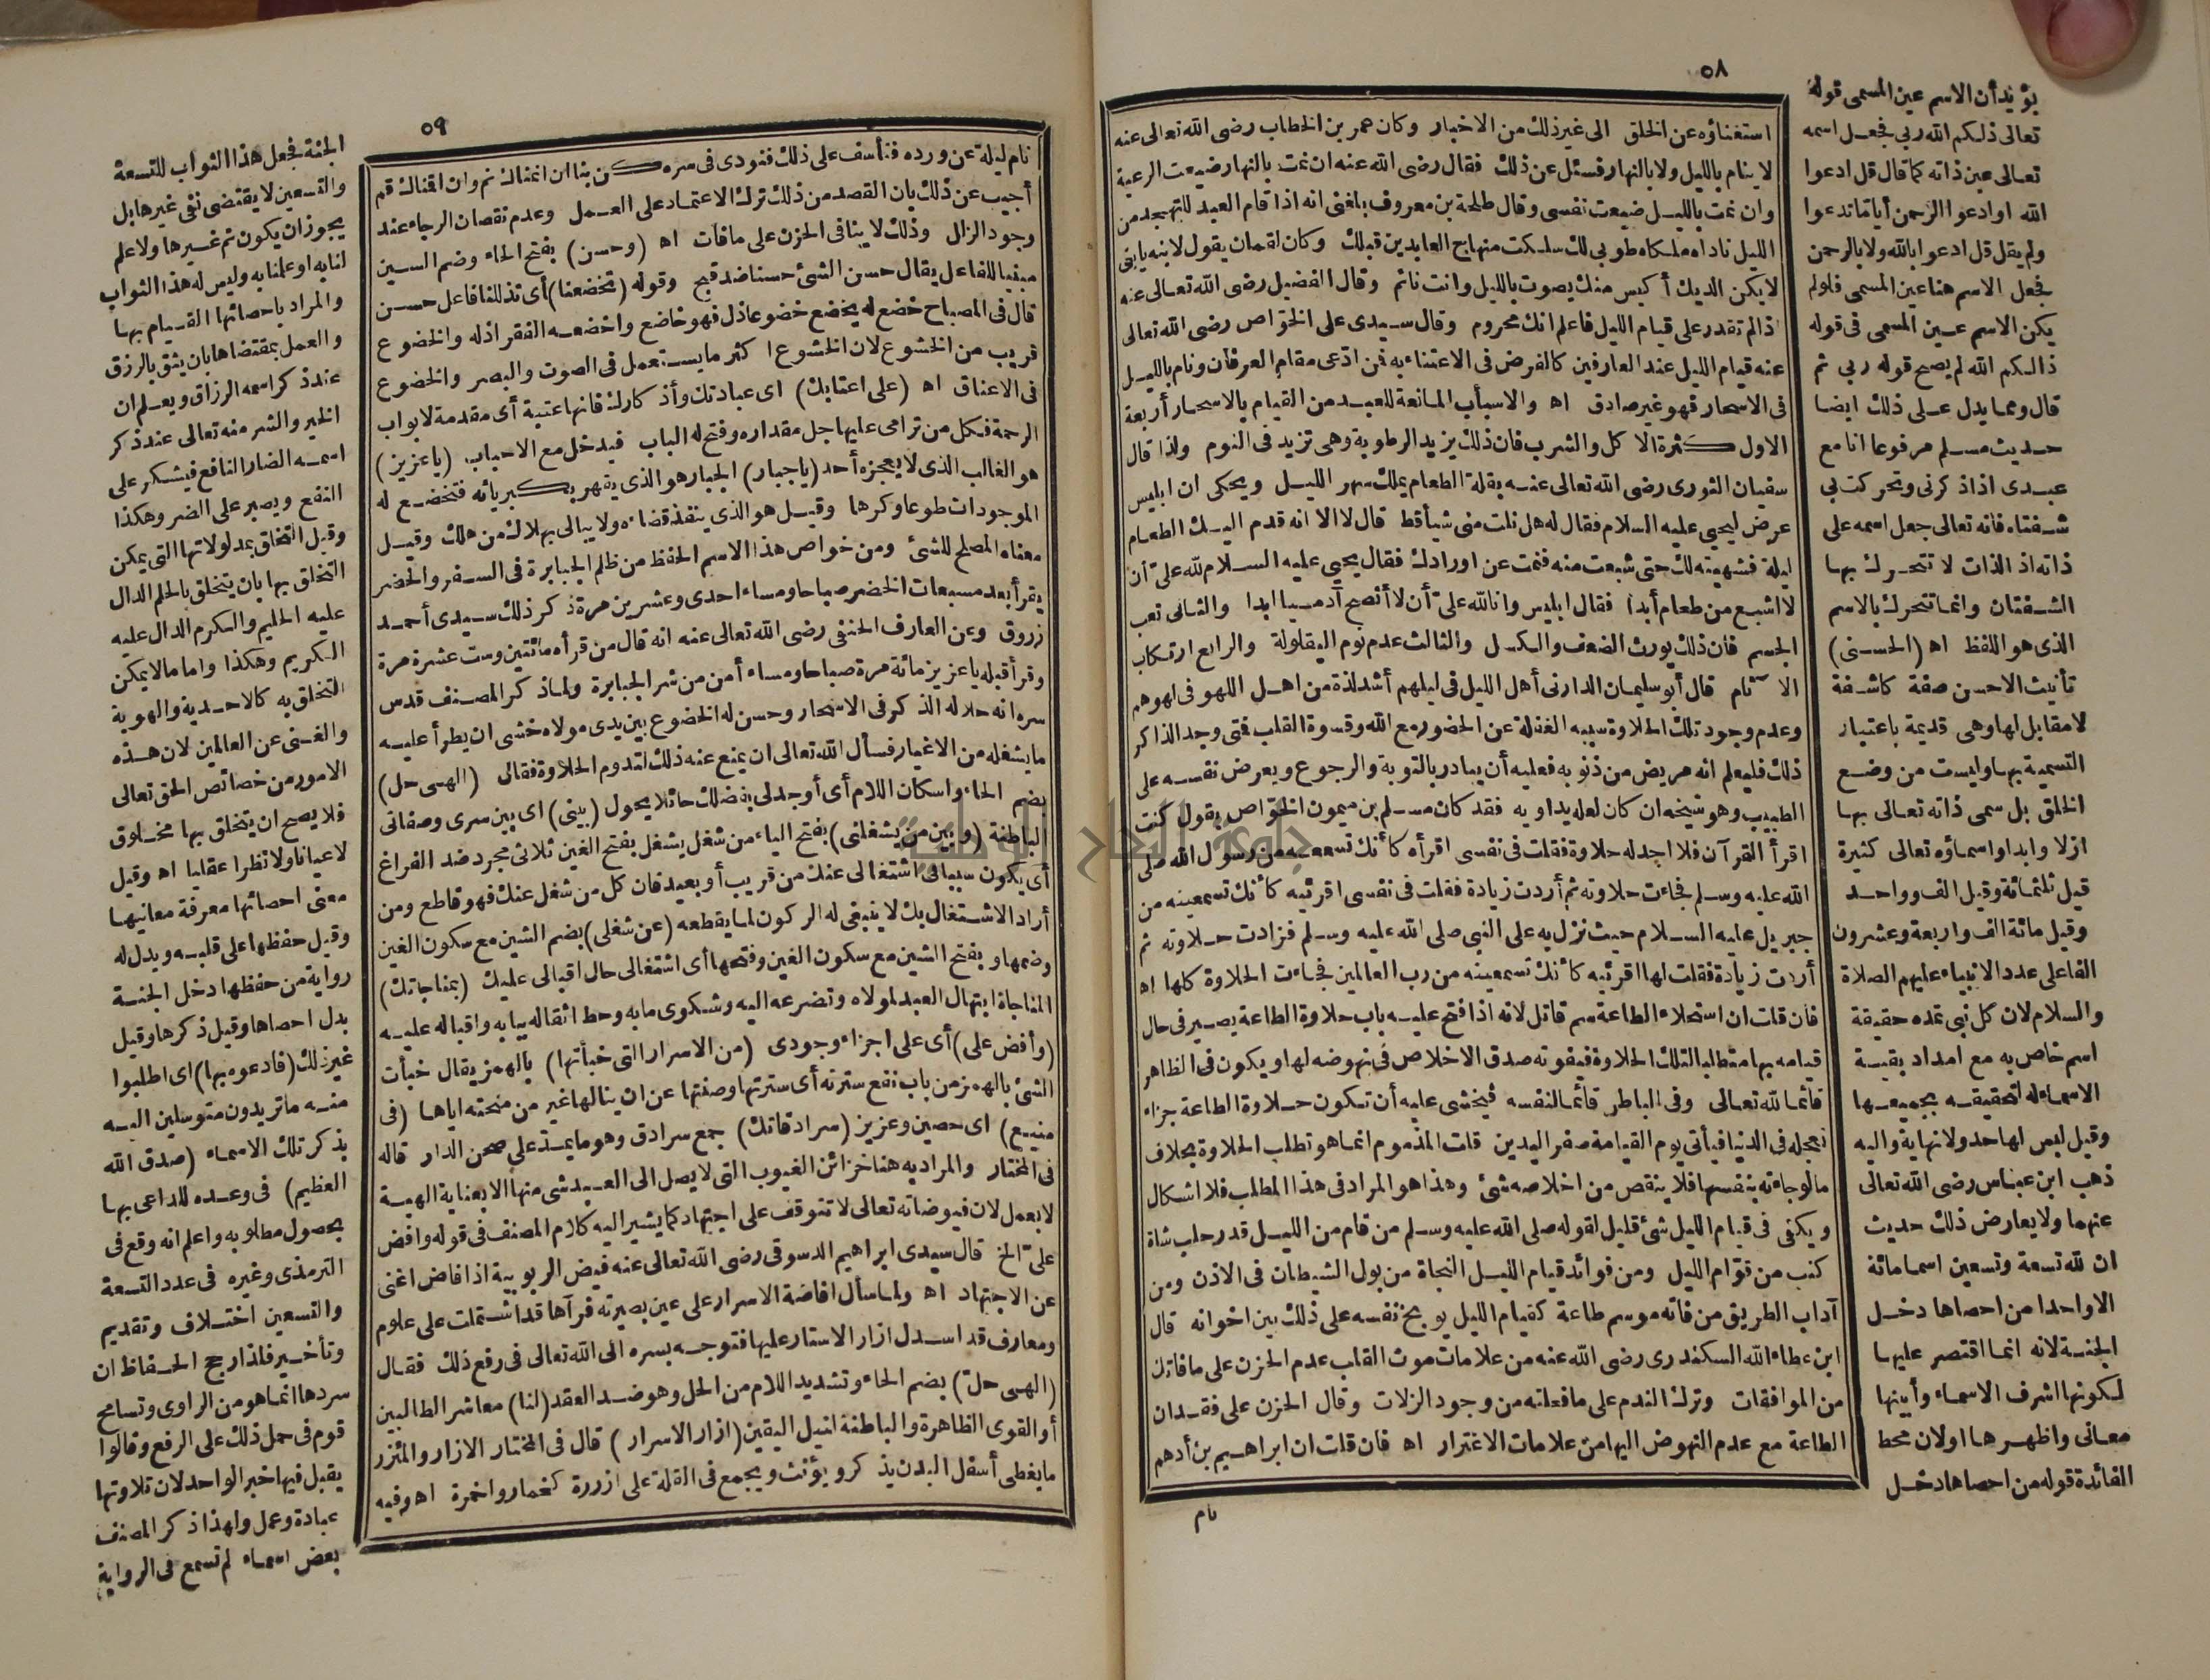 ٥٨
استغناؤه عن الخلق الى غير ذلك من الاخبار وكان عمر بن الخطاب رضى الله تعالى عنه
لا ينام بالليل ولا بالنهار فسئل عن ذلك فقال رضى الله عنه ان نمت بالنهار ضيعت الرعية
وان نمت بالليل ضيعت نفسى وقال طلحة بن معروف بلغنى انه اذا قام العبد للتهجد من
الليل ناداه ملكاه طوبى لك سلكت منهاج العابدين قبلك وكان لقمان يقول لابنه يابنى
لا يكن الديك أكيس منك يصوت بالليل وانت نائم وقال الفضيل رضى الله تعالى عنه
اذا لم تقدر على قيام الليل فاعلم انك محروم وقال سيدى على الخواص رضى الله تعالى
عنه قيام الليل عند العارفين كالفرض فى الاعتناء به فمن ادعى مقام العرفان ونام بالليل
فى الاسحار فهو غير صادق اه والاسباب المانعة للعبد من القيام بالاسحار أربعة
الاول كثرة الاكل والشرب فان ذلك يزيد الرطوبة وهى تزيد فى النوم ولذا قال
سفيان الثورى رضى الله تعالى عنه بقلة الطعام يملك سهر الليل ويحكى ان ابليس
عرض ليحيى عليه السلام فقال له هل نلت منى شيأ قط قال لا الا انه قدم اليك الطعام
ليلة فشهيته لك حتى شبعت منه فنمت عن اورادك فقال يحيى عليه السلام لله على أن
لا اشبع من طعام أبدا فقال ابليس وانا لله على أن لا أنصح آدميا ابدا والثانى تعب
الجسم فان ذلك يورث الضعف والكسل والثالث عدم نوم القيلولة والرابع ارتكاب
الآثام قال أبو سليمان الدارنى أهل الليل فى ليلهم أشد لذة من اهل اللهو فى لهوهم
وعدم وجود تلك الحلاوة سببه الغفلة عن الحضور مع الله وقسوة القلب فمتى وجد الذاكر
ذلك فليعلم انه مريض من ذنوبه فعليه أن يبادر بالتوبة والرجوع ويعرض نفسه على
الطبيب وهو شيخه ان كان لعله يداويه فقد كان مسلم بن ميمون الخواص يقول كنت
اقرأ القرآن فلا اجد له حلاوة فقلت فى نفسى اقرأه كأنك تسمعيه من رسول الله صلى
الله عليه وسلم فجاءت حلاوته ثم أردت زيادة فقلت فى نفسى اقرئيه كأنك تسمعينه من
جبريل عليه السلام حيث نزل به على النبى صلى الله عليه وسلم فزادت حلاوته ثم
أردت زيادة فقلت لها اقرئيه كأنك تسمعينه من رب العالمين فجاءت الحلاوة كلها اه
فان قلت ان استحلاء الطاعة سم قاتل لانه اذا فتح عليه باب حلاوة الطاعة يصير فى حال
قيامه بها متطلبا لتلك الحلاوة فيفوته صدق الاخلاص فى نهوضه لها ويكون فى الظاهر
قائما لله تعالى وفى الباطن قائما لنفسه فيخشى عليه أن تكون حلاوة الطاعة جزاء
تعجله فى الدنيا فيأتى يوم القيامة صفر اليدين قلت المذموم انما هو تطلب الحلاوة بخلاف
ما لو جاءته بنفسها فلا ينقص من اخلاصه شئ وهذا هو المراد فى هذا المطلب فلا اشكال
ويكفى فى قيام الليل شئ قليل لقوله صلى الله عليه وسلم من قام من الليل قدر حلب شاة
كتب من قوام الليل ومن فوائد قيام الليل النجاة من بول الشيطان فى الاذن ومن
آداب الطريق من فاته موسم طاعة كقيام الليل يوبخ نفسه على ذلك بين اخوانه قال
ابن عطاء الله السكندرى رضى الله عنه من علامات موت القلب عدم الحزن على ما فاتك
من الموافقات وترك الندم على ما فعلته من وجود الزلات وقال الحزن على فقدان
الطاعة مع عدم النهوض اليها من علامات الاغترار اه فان قلت ان ابراهيم بن أدهم
نام
يؤيد أن الاسم عين المسمى قوله
تعالى ذلكم الله ربى فجعل اسمه
تعالى عين ذاته كما قال قل ادعوا
الله اوادعوا الرحمن أياما تدعوا
ولم يقل قل ادعوا بالله ولا بالرحمن
فجعل الاسم هنا عين المسمى فلولم
يكن الاسم عين المسمى فى قوله
ذالكم الله لم يصح قوله ربى ثم
قال ومما يدل على ذلك ايضا
حديث مسلم مرفوعا انا مع
عبدى اذا ذكرنى وتحركت بى
شفتاه فانه تعالى جعل اسمه على
ذاته اذ الذات لا تتحرك بها
الشفتان وانما تتحرك بالاسم
الذى هو اللفظ اه (الحسنى)
تأنيث الاحسن صفة كاشفة
لا مقابل لها وهى قديمة باعتبار
التسمية بها وليست من وضع
الخلق بل سمى ذاته تعالى بها
ازلا وابدا واسماؤه تعالى كثيرة
قيل ثلثمائة وقيل الف وواحد
وقيل مائة الف واربعة وعشرون
الفا على عدد الانبياء عليهم الصلاة
والسلام لان كل نبى تمده حقيقة
اسم خاص به مع امداد بقية
الاسماء له لتحققه بجميعها
وقيل ليس لها حد ولا نهاية واليه
ذهب ابن عباس رضى الله تعالى
عنهما ولا يعارض ذلك حديث
ان لله تسعة وتسعين اسما مائة
الا واحدا من احصاها دخل
الجنة لانه انما اقتصر عليها
لكونها اشرف الاسماء وأبينها
معانى واظهرها اولان محط
الفائدة قوله من احصاها دخل
٥٩
نام ليلة عن ورده فتأسف على ذلك فنودى فى سره كن بنا ان انمناك نم وان اقمناك قم
أجيب عن ذلك بان القصد من ذلك ترك الاعتماد على العمل وعدم نقصان الرجاء عند
وجود الزلل وذلك لا ينافى الحزن على ما فات اه (وحسن) بفتح الحاء وضم السين
مبنيا للفاعل يقال حسن الشئ حسنا ضد قبح وقوله (تخضعنا) أى تذللنا فاعل حسن
قال فى المصباح خضع له يخضع خضوعا ذل فهو خاضع واخضعه الفقر اذله والخضوع
قريب من الخشوع لان الخشوع اكثر ما يستعمل فى الصوت والبصر والخضوع
فى الاعناق اه (على اعتابك) اى عبادتك وأذكارك فانها عتبة أى مقدمة لابواب
الرحمة فكل من ترامى عليها جل مقداره وفتح له الباب فيدخل مع الاحباب (يا عزيز)
هو الغالب الذى لا يعجزه أحد (يا جبار) الجبار هو الذى يقهر بكبريائه فتخضع له
الموجودات طوعا وكرها وقيل هو الذى ينفذ قضاءه ولا يبالى بهلاك من هلك وقيل
معناه المصلح للشئ ومن خواص هذا الاسم الحفظ من ظلم الجبابرة فى السفر والحضر
يقرأ بعد مسبعات الخضر صباحا ومساء احدى وعشرين مرة ذكر ذلك سيدى أحمد
زروق وعن العارف الحنفى رضى الله تعالى عنه انه قال من قرأه مائتين وست عشرة مرة
وقرأ قبله يا عزيز مائة مرة صباحا ومساء أمن من شر الجبابرة ولما ذكر المصنف قدس
سره انه حلا له الذكر فى الاسحار وحسن له الخضوع بين يدى مولاه خشى ان يطرأ عليه
ما يشغله من الاغيار فسأل الله تعالى ان يمنع عنه ذلك لتدوم الحلاوة فقال (الهى حل)
بضم الحاء واسكان اللام أى أوجد لى بفضلك حائلا يحول (بينى) اى بين سرى وصفاتى
الباطنة (وبين من يشغلنى) بفتح الياء من شغل يشغل بفتح الغين ثلاثى مجرد ضد الفراغ
أى يكون سببا فى اشتغالى عنك من قريب أو بعيد فان كل من شغل عنك فهو قاطع ومن
أراد الاشتغال بك لا ينبغى له الركون لما يقطعه (عن شغلى) بضم الشين مع سكون الغين
وضمها وبفتح الشين مع سكون الغين وفتحها أى اشتغالى حال اقبالى عليك (بمناجاتك)
المناجاة ابتهال العبد لمولاه وتضرعه اليه وشكوى ما به وحط اثقاله ببابه واقباله عليه
(وأفض على) أى على اجزاء وجودى (من الاسرار التى خبأتها) بالهمز يقال خبأت
الشئ بالهمز من باب نفع سترته أى سترتها وصنتها عن ان ينالها غير من منحته اياها (فى
منيع) اى حصين وعزيز (سرادقاتك) جمع سرادق وهو ما يمد على صحن الدار قاله
فى المختار والمراد به هنا خزائن الغيوب التى لا يصل الى العبد شئ منها الا بعناية الهية
لا بعمل لان فيوضاته تعالى لا تتوقف على اجتهاد كما يشير اليه كلام المصنف فى قوله وافض
على الخ قال سيدى ابراهيم الدسوقى رضى الله تعالى عنه فيض الربوبية اذا فاض اغنى
عن الاجتهاد اه ولما سأل افاضة الاسرار على عين بصيرته فرآها قد اشتملت على علوم
ومعارف قد اسدل ازار الاستار عليها فتوجه بسره الى الله تعالى فى رفع ذلك فقال
(الهى حل) بضم الحاء وتشديد اللام من الحل وهو ضد العقد (لنا) معاشر الطالبين
أو القوى الظاهرة والباطنة لنيل اليقين (ازار الاسرار) قال فى المختار الازار والمئزر
ما يغطى أسفل البدن يذكر ويؤنث ويجمع فى القلة على ازرة كخمار واخمرة اه وفيه
الجنة فجعل هذا الثواب للتسعة
والتسعين لا يقتضى نفى غيرها بل
يجوز ان يكون ثم غيرها ولا علم
لنا به او علمنا به وليس له هذا الثواب
والمراد باحصائها القيام بها
والعمل بمقتضاها بان يثق بالرزق
عند ذكر اسمه الرزاق ويعلم ان
الخير والشر منه تعالى عند ذكر
اسمه الضار النافع فيشكر على
النفع ويصبر على الضر وهكذا
وقيل التخلق بمدلولاتها التى يمكن
التخلق بها بان يتخلق بالحلم الدال
عليه الحليم والكرم الدال عليه
الكريم وهكذا واما ما لا يمكن
التخلق به كالاحدية والهوية
والغنى عن العالمين لان هذه
الامور من خصائص الحق تعالى
فلا يصح ان يتخلق بها مخلوق
لا عيانا ولا نظرا عقليا اه وقيل
معنى احصائها معرفة معانيها
وقيل حفظها على قلبه ويدل له
رواية من حفظها دخل الجنة
بدل احصاها وقيل ذكرها وقيل
غير ذلك (فادعوه بها) اى اطلبوا
منه ما تريدون متوسلين اليه
بذكر تلك الاسماء (صدق الله
العظيم) فى وعده للداعى بها
بحصول مطلوبه واعلم انه وقع فى
الترمذى وغيره فى عدد التسعة
والتسعين اختلاف وتقديم
وتأخير فلذا رجح الحفاظ ان
سردها انما هو من الراوى وتسامح
قوم فى حمل ذلك على الرفع وقالوا
يقبل فيها خبر الواحد لان تلاوتها
عبادة وعمل ولهذا ذكر المصنف
بعض اسماء لم تسمع فى الرواية
جامعة النجاح الوطنية